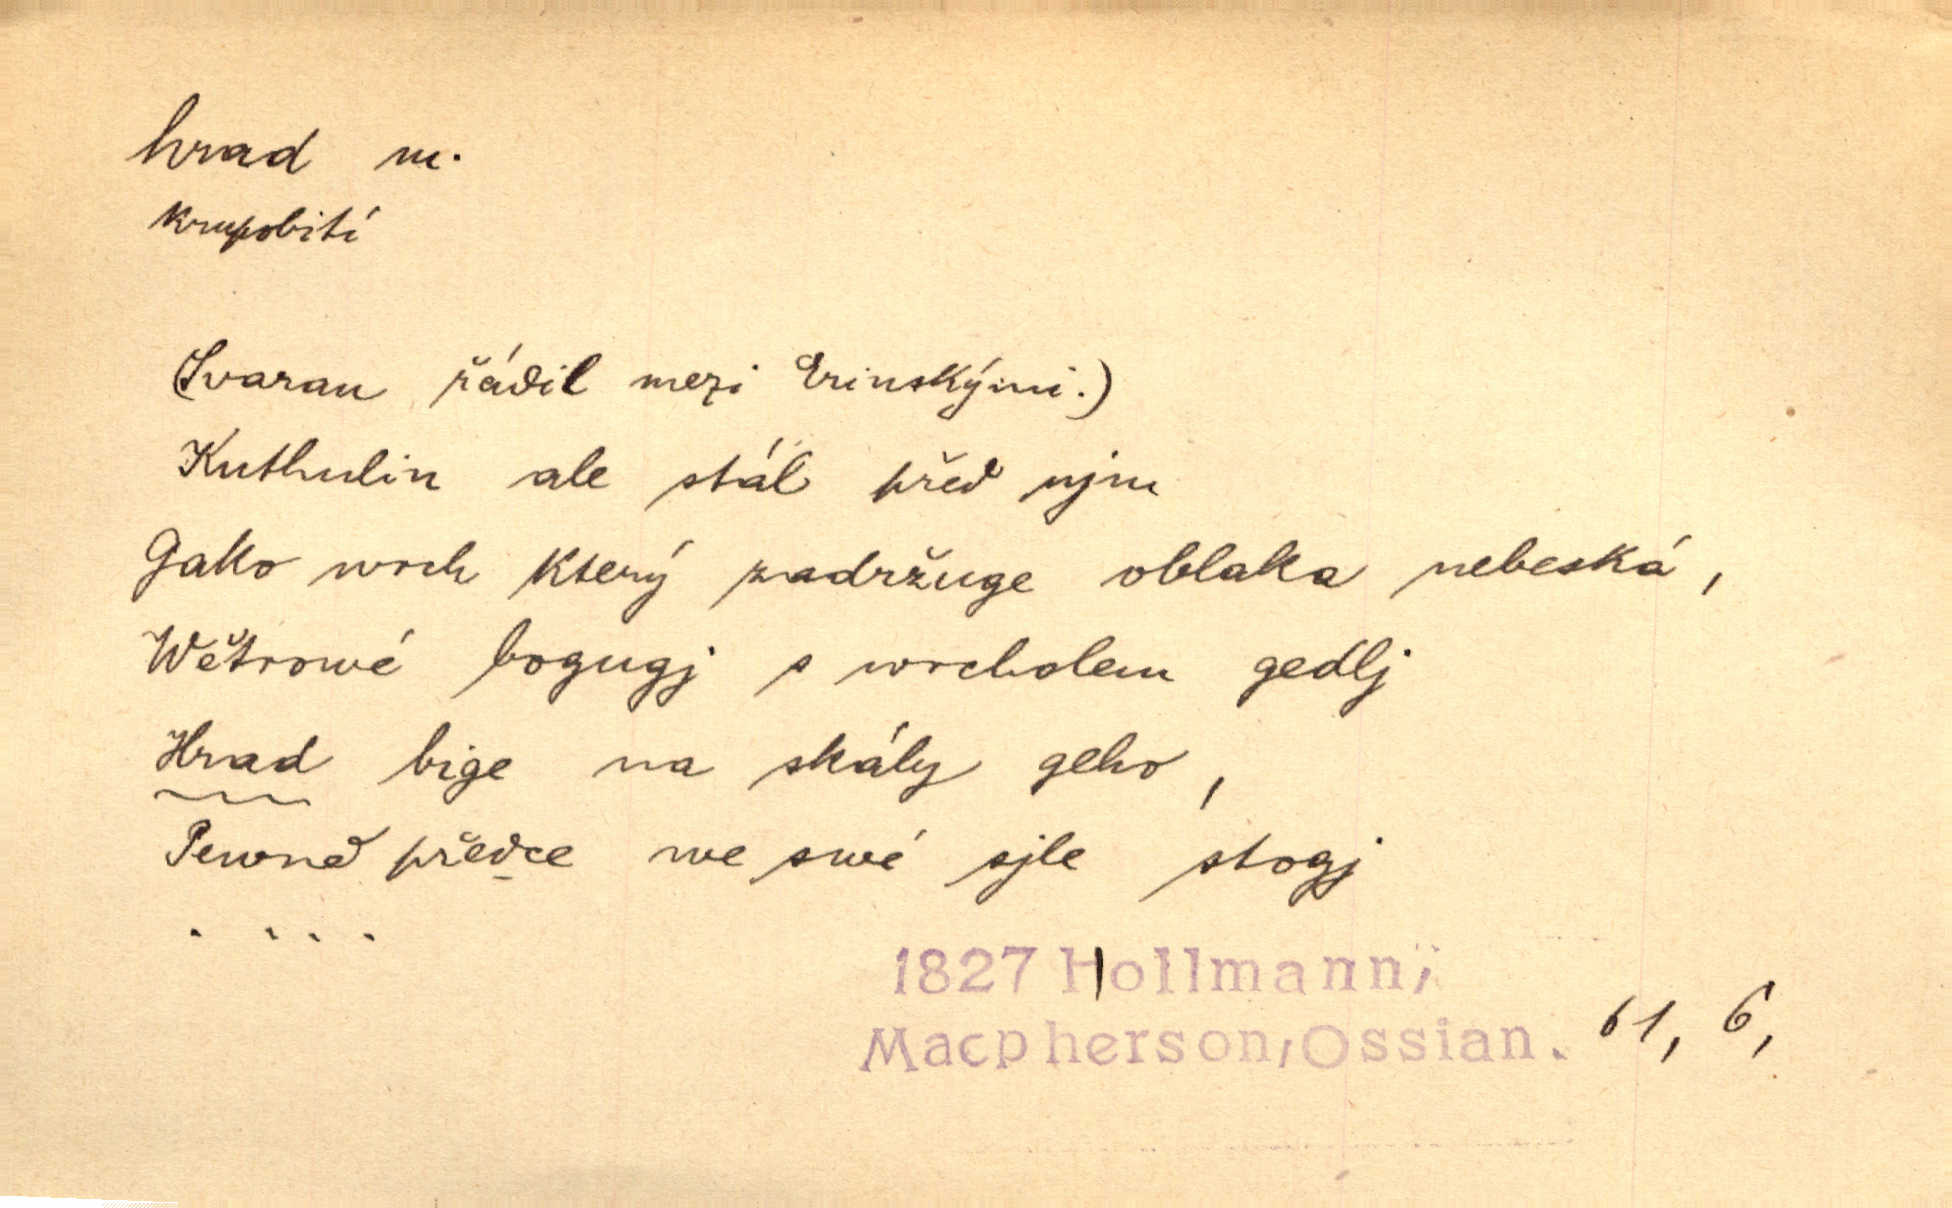 hrad m.
krupobití
(Svaran řádil mezi Erinskými.)
Kuthulin ale stál před njm
Gako wrch který zadržuge oblaka nebeská,
Wětrowé bogugj s wrcholem gedlj
Hrad bige na skály geho,
Pewně předce we swé sjle stogj
. . . .
1827 Hollmann,
Macpherson, Ossian. 61, 6,